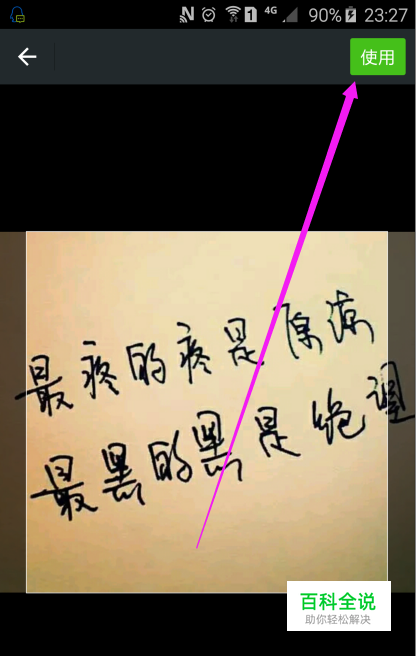 4G 90% 23:27
使用
最疼的疼是原谅
最黑的黑是绝望
百科全说
助你轻松解决